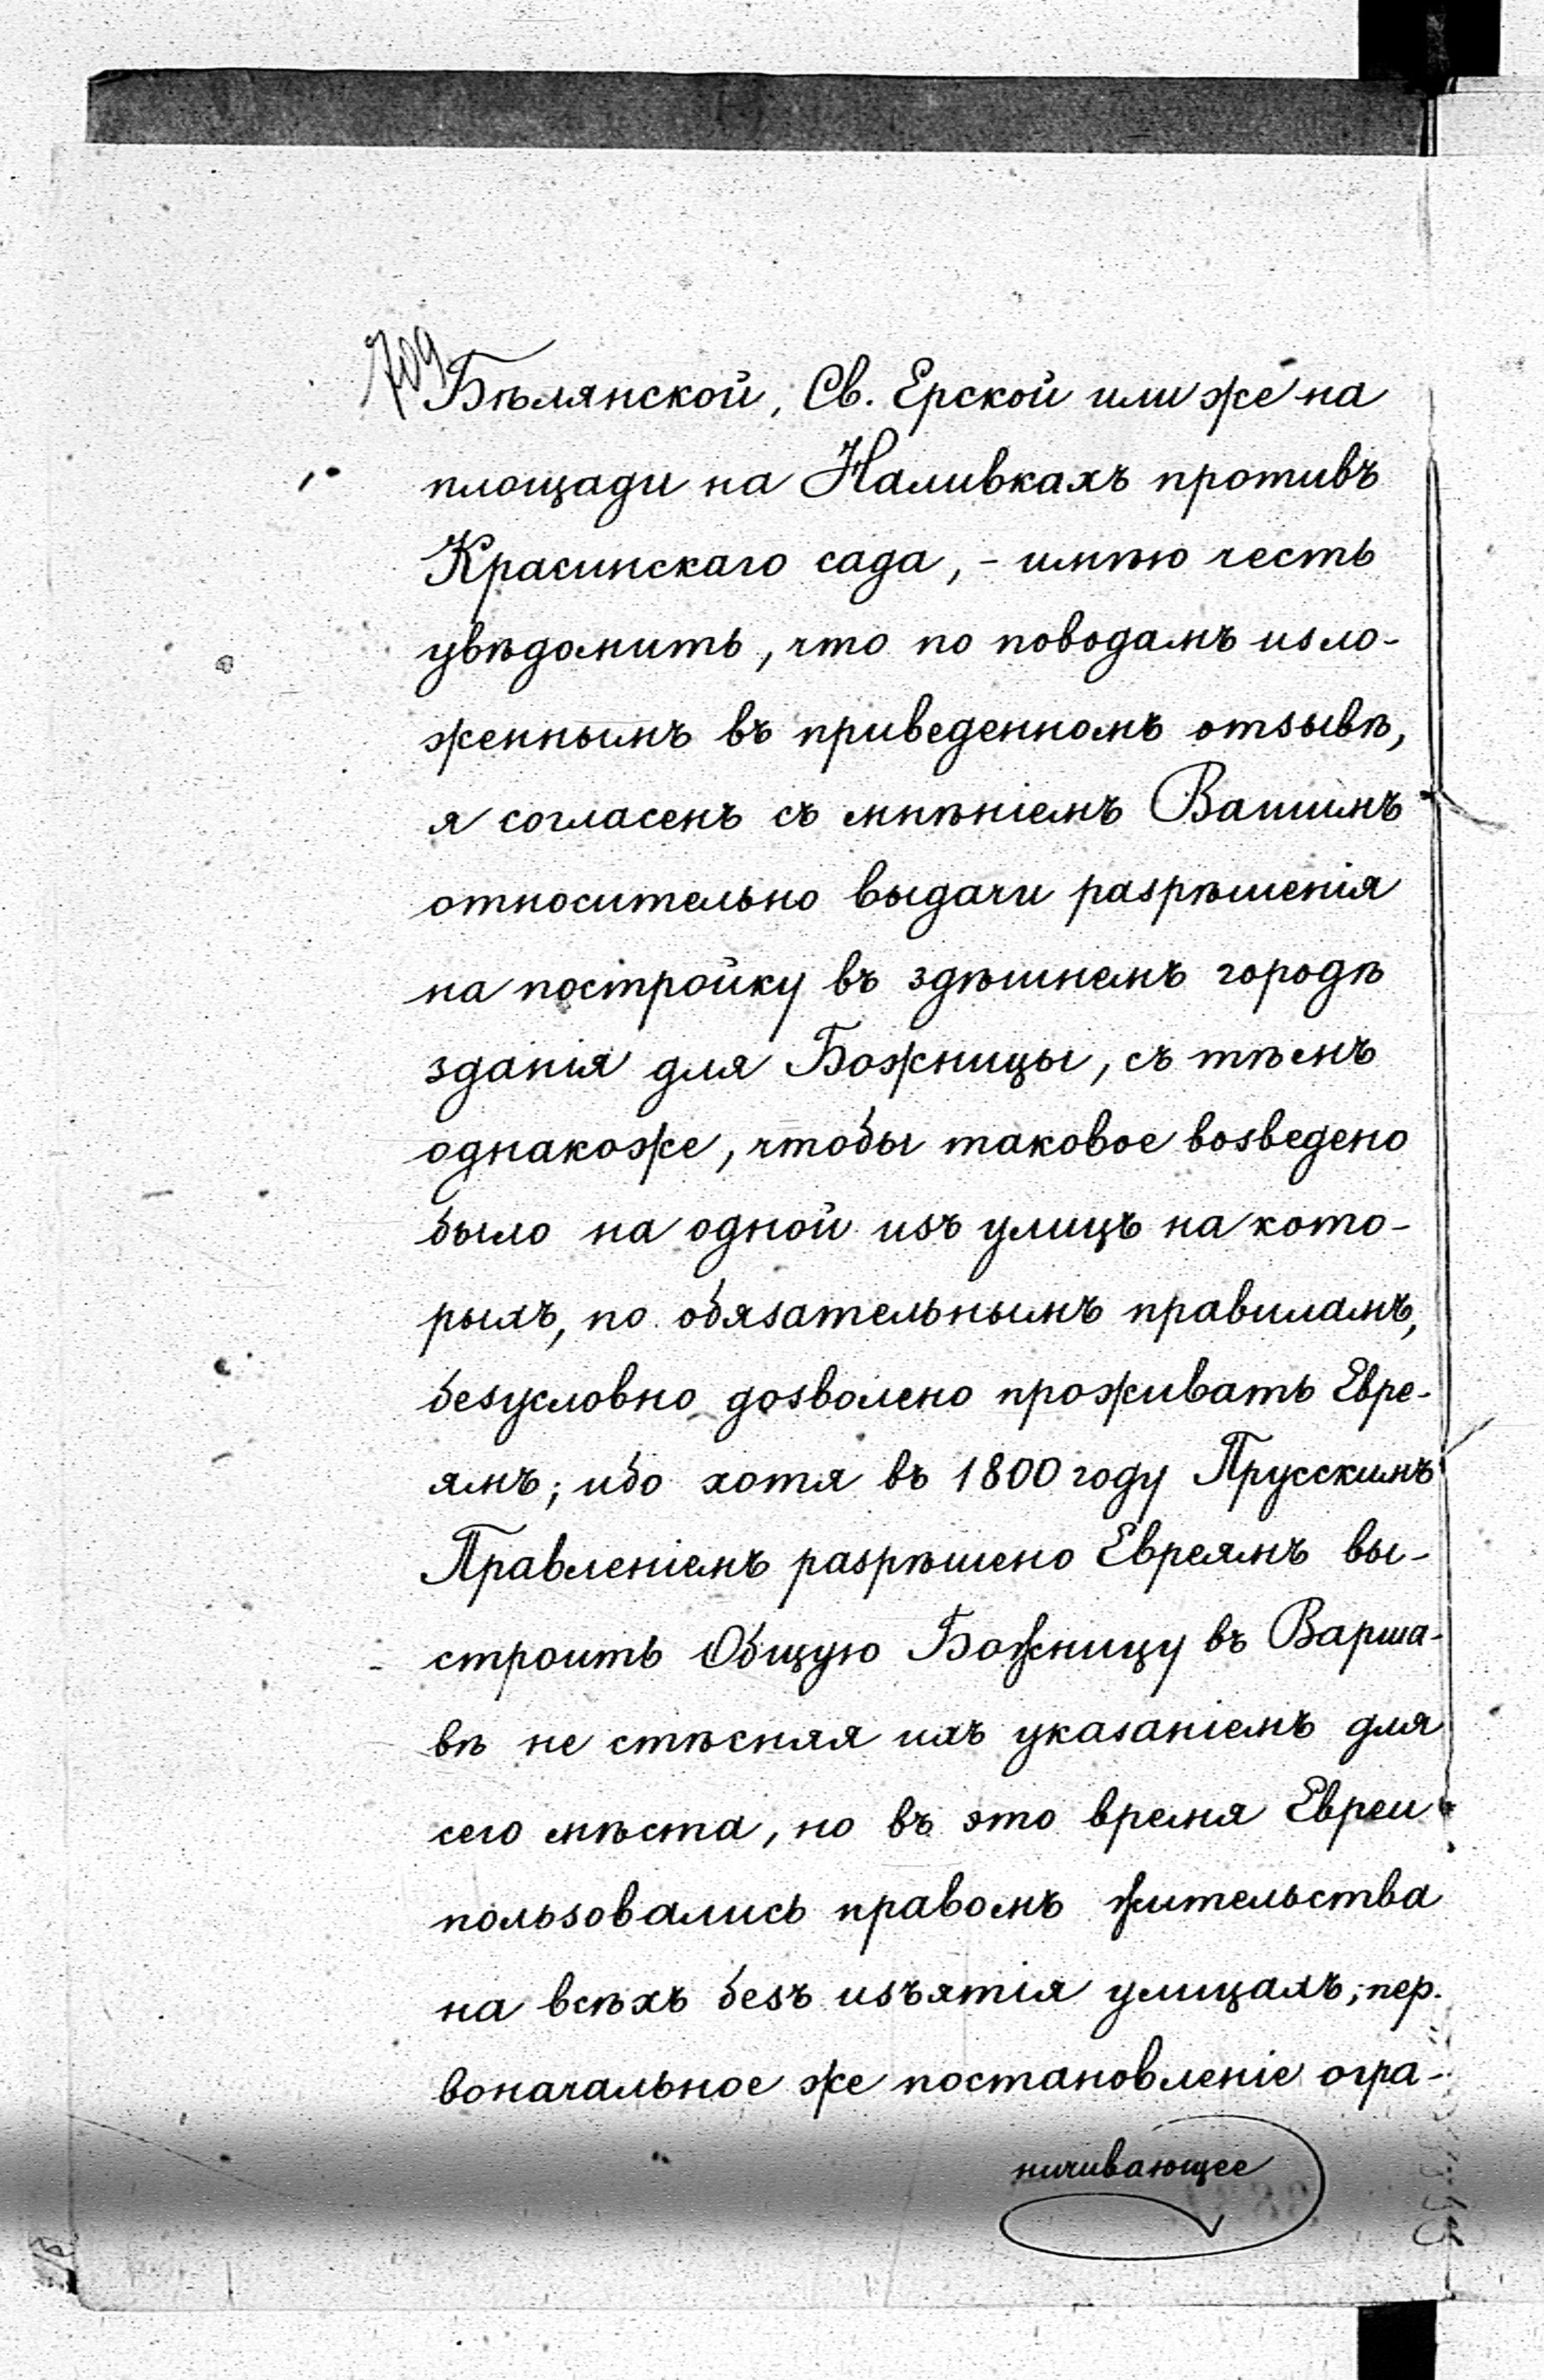 709
Бѣлянской, Св. Ерской или же на
площади на Наливкахъ противъ
Красинскаго сада, - имѣю честь
увѣдомить, что по поводамъ изло-
женнымъ въ приведенномъ отзывѣ,
я согласенъ съ мнѣніемъ Вашимъ
относительно выдачи разрѣшенія
на постройку въ здѣшнемъ городѣ
зданія для Божницы, съ тѣмъ
однакоже, чтобы таковое возведено
было на одной изъ улицъ на кото-
рыхъ, по обязательнымъ правиламъ,
безусловно дозволено проживать Евре-
ямъ; ибо хотя въ 1800 году Прусскимъ
Правленіемъ разрѣшено Евреямъ вы-
строить Общую Божницу въ Варша-
вѣ не стѣсняя ихъ указаніемъ для
сего мѣста, но въ это время Евреи
пользовались правомъ жительства
на всѣхъ безъ изъятія улицахъ; пер-
воначальное же постановленіе огра-
ничивающее